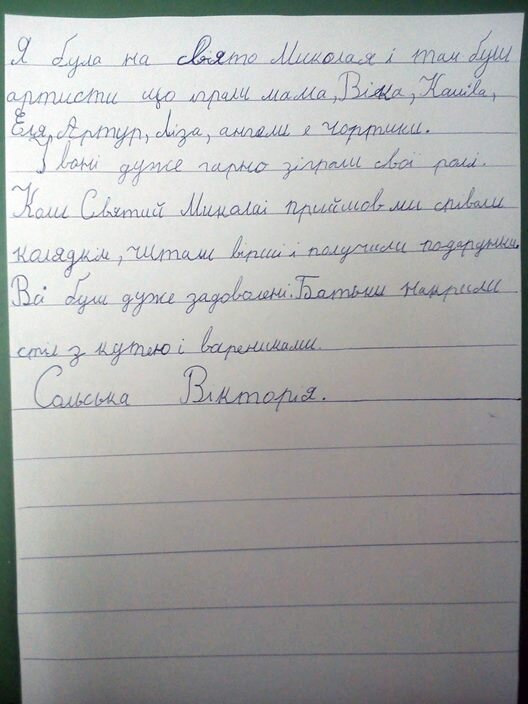 Я була на свято Миколая і там були
артисти що іграли мама, Віка, Каміла,
Еля, Артур, Ліза, ангели є чортики.
І вані дуже гарно зіграли свої ролі.
Коли Святий Миколаі прийшов ми співали
колядкім, читали вірші і получили подарунки.
Всі були дуже задоволені. Батьки накрили
стіл з кутею і варениками.
Сольська Вікторія.